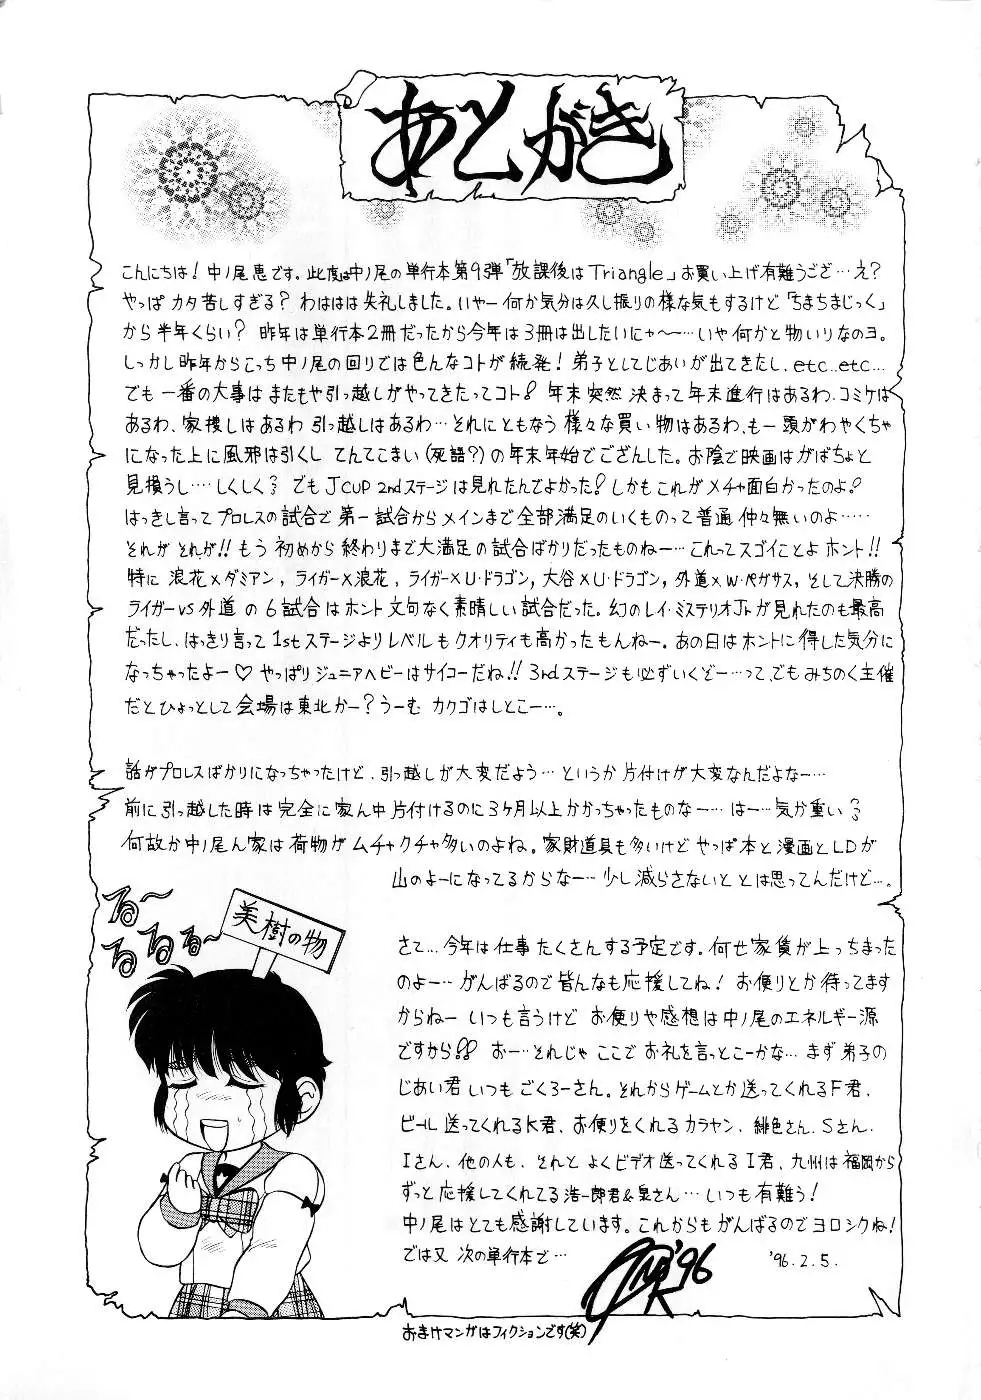 あとがき
こんにちは!中ノ尾恵です。此度は中ノ尾の単行本第9弾「放課後はTriangle」お買い上げ有難うござ…え?
やっぱカタ苦しすぎる?わははは失礼しました。いやー何か気分は久し振りの様な気もするけど「ちまちまじっく」
から半年くらい?昨年は単行本2冊だったから今年は3冊は出したいにゃ〜〜…いや何かと物いりなのヨ。
しっかし昨年からこっち中ノ尾の回りでは色んなコトが続発!弟子としてじあいが出てきたし、etc..etc…
でも一番の大事はまたもや引っ越しがやってきたってコト!年末突然決まって年末進行はあるわ、コミケは
あるわ、家捜しはあるわ引っ越しはあるわ…それにともなう様々な買い物はあるわ、も一頭がわやくちゃ
になった上に風邪は引くしてんてこまい(死語?)の年末年始でござんした。お陰で映画はがばちょと
見損うし…しくしく でもJCUP 2ndステージは見れたんでよかった!しかもこれがメチャ面白かったのよ!
はっきし言ってプロレスの試合で第一試合からメインまで全部満足のいくものって普通仲々無いのよ……
それがそれが!!もう初めから終わりまで大満足の試合ばかりだったものねー…これってスゴイことよホント!!
特に浪花×ダミアン,ライガー×浪花,ライガー×U・ドラゴン,大谷×U・ドラゴン,外道×W・ペガサス,そして決勝の
ライガーVS外道の6試合はホント文句なく素晴しい試合だった。幻のレイ・ミステリオJrが見れたのも最高
だったし、はっきり言って1stステージよりレベルもクオリティも高かったもんねー。あの日はホントに得した気分に
なっちゃったよー♡やっぱりジュニアヘビーはサイコーだね!!3rdステージも必ずいくぞー…って、でもみちのく主催
だとひょっとして会場は東北かー?うーむカクゴはしとこー…。
話がプロレスばかりになっちゃったけど、引っ越しが大変だよう…というか片付けが大変なんだよなー…
前に引っ越した時は完全に家ん中片付けるのに3ヶ月以上かかっちゃったものなー…はー…気が重い
何故か中ノ尾ん家は荷物がムチャクチャ多いのよね。家財道具も多いけどやっぱ本と漫画とLDが
山のよーになってるからなー…少し減らさないととは思ってんだけど…。
る〜
るるる〜
美樹の物
さて…今年は仕事たくさんする予定です。何せ家賃が上っちまった
のよー…がんばるので皆んなも応援してね!お便りとか待ってます
からねーいつも言うけどお便りや感想は中ノ尾のエネルギー源
ですから!!おー…それじゃここでお礼を言っとこーかな…まず弟子の
じあい君いつもごくろーさん。それからゲームとか送ってくれるF君、
ビール送ってくれるK君、お便りをくれるカラヤン、緋色さん、Sさん、
Iさん、他の人も、それとよくビデオ送ってくれるI君、九州は福岡から
ずっと応援してくれてる浩一郎君&泉さん…いつも有難う!
中ノ尾はとても感謝しています。これからもがんばるのでヨロシクね!
では又次の単行本で…
'96
'96.2.5.
おまけマンガはフィクションです(笑)